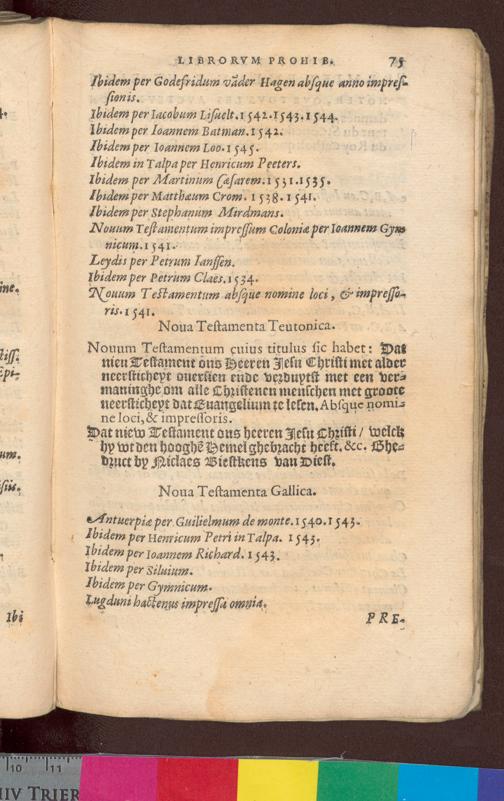 LIBRORVM PROHIB. 75
Ibidem per Godefridum vāder Hagen absque anno impres-
sionis.
Ibidem per Iacobum Lisuelt.1542.1543.1544.
Ibidem per Ioannem Batman.1542.
Ibidem per Ioannem Loo.1545.
Ibidem in Talpa per Henricum Peeters.
Ibidem per Martinum Cæsarem.1531.1535.
Ibidem per Matthæum Crom. 1538. 1541.
Ibidem per Stephanum Mirdmans.
Nouum Testamentum impressum Coloniæ per Ioannem Gym
nicum.1541.
Leydis per Petrum Ianssen.
Ibidem per Petrum Claes.1534.
Nouum Testamentum absque nomine loci, & impresso-
ris.1541.
Noua Testamenta Teutonica.
Nouum Testamentum cuius titulus sic habet: Dat
nieu Testament ons Heeren Jesu Christi met alder
neersticheyt ouersien ende verduytst met een ver-
maninghe om alle Christenen menschen met groote
neersticheyt dat Euangelium te lesen. Absque nomi-
ne loci, & impressoris.
Dat niew Testament ons heeren Jesu Christi / welck
hy wt den hooghē Hemel ghebracht heeft. &c. Ghe-
druct by Niclaes Biestkens van Diest.
Noua Testamenta Gallica.
Antuerpiæ per Guilielmum de monte.1540.1543.
Ibidem per Henricum Petri in Talpa. 1543.
Ibidem per Ioannem Richard. 1543.
Ibidem per Siluium.
Ibidem per Gymnicum.
Lugduni hactenus impressa omnia.
PRE-
ine.
Epi-
um.
Ibi
10 11
IIV TRIER